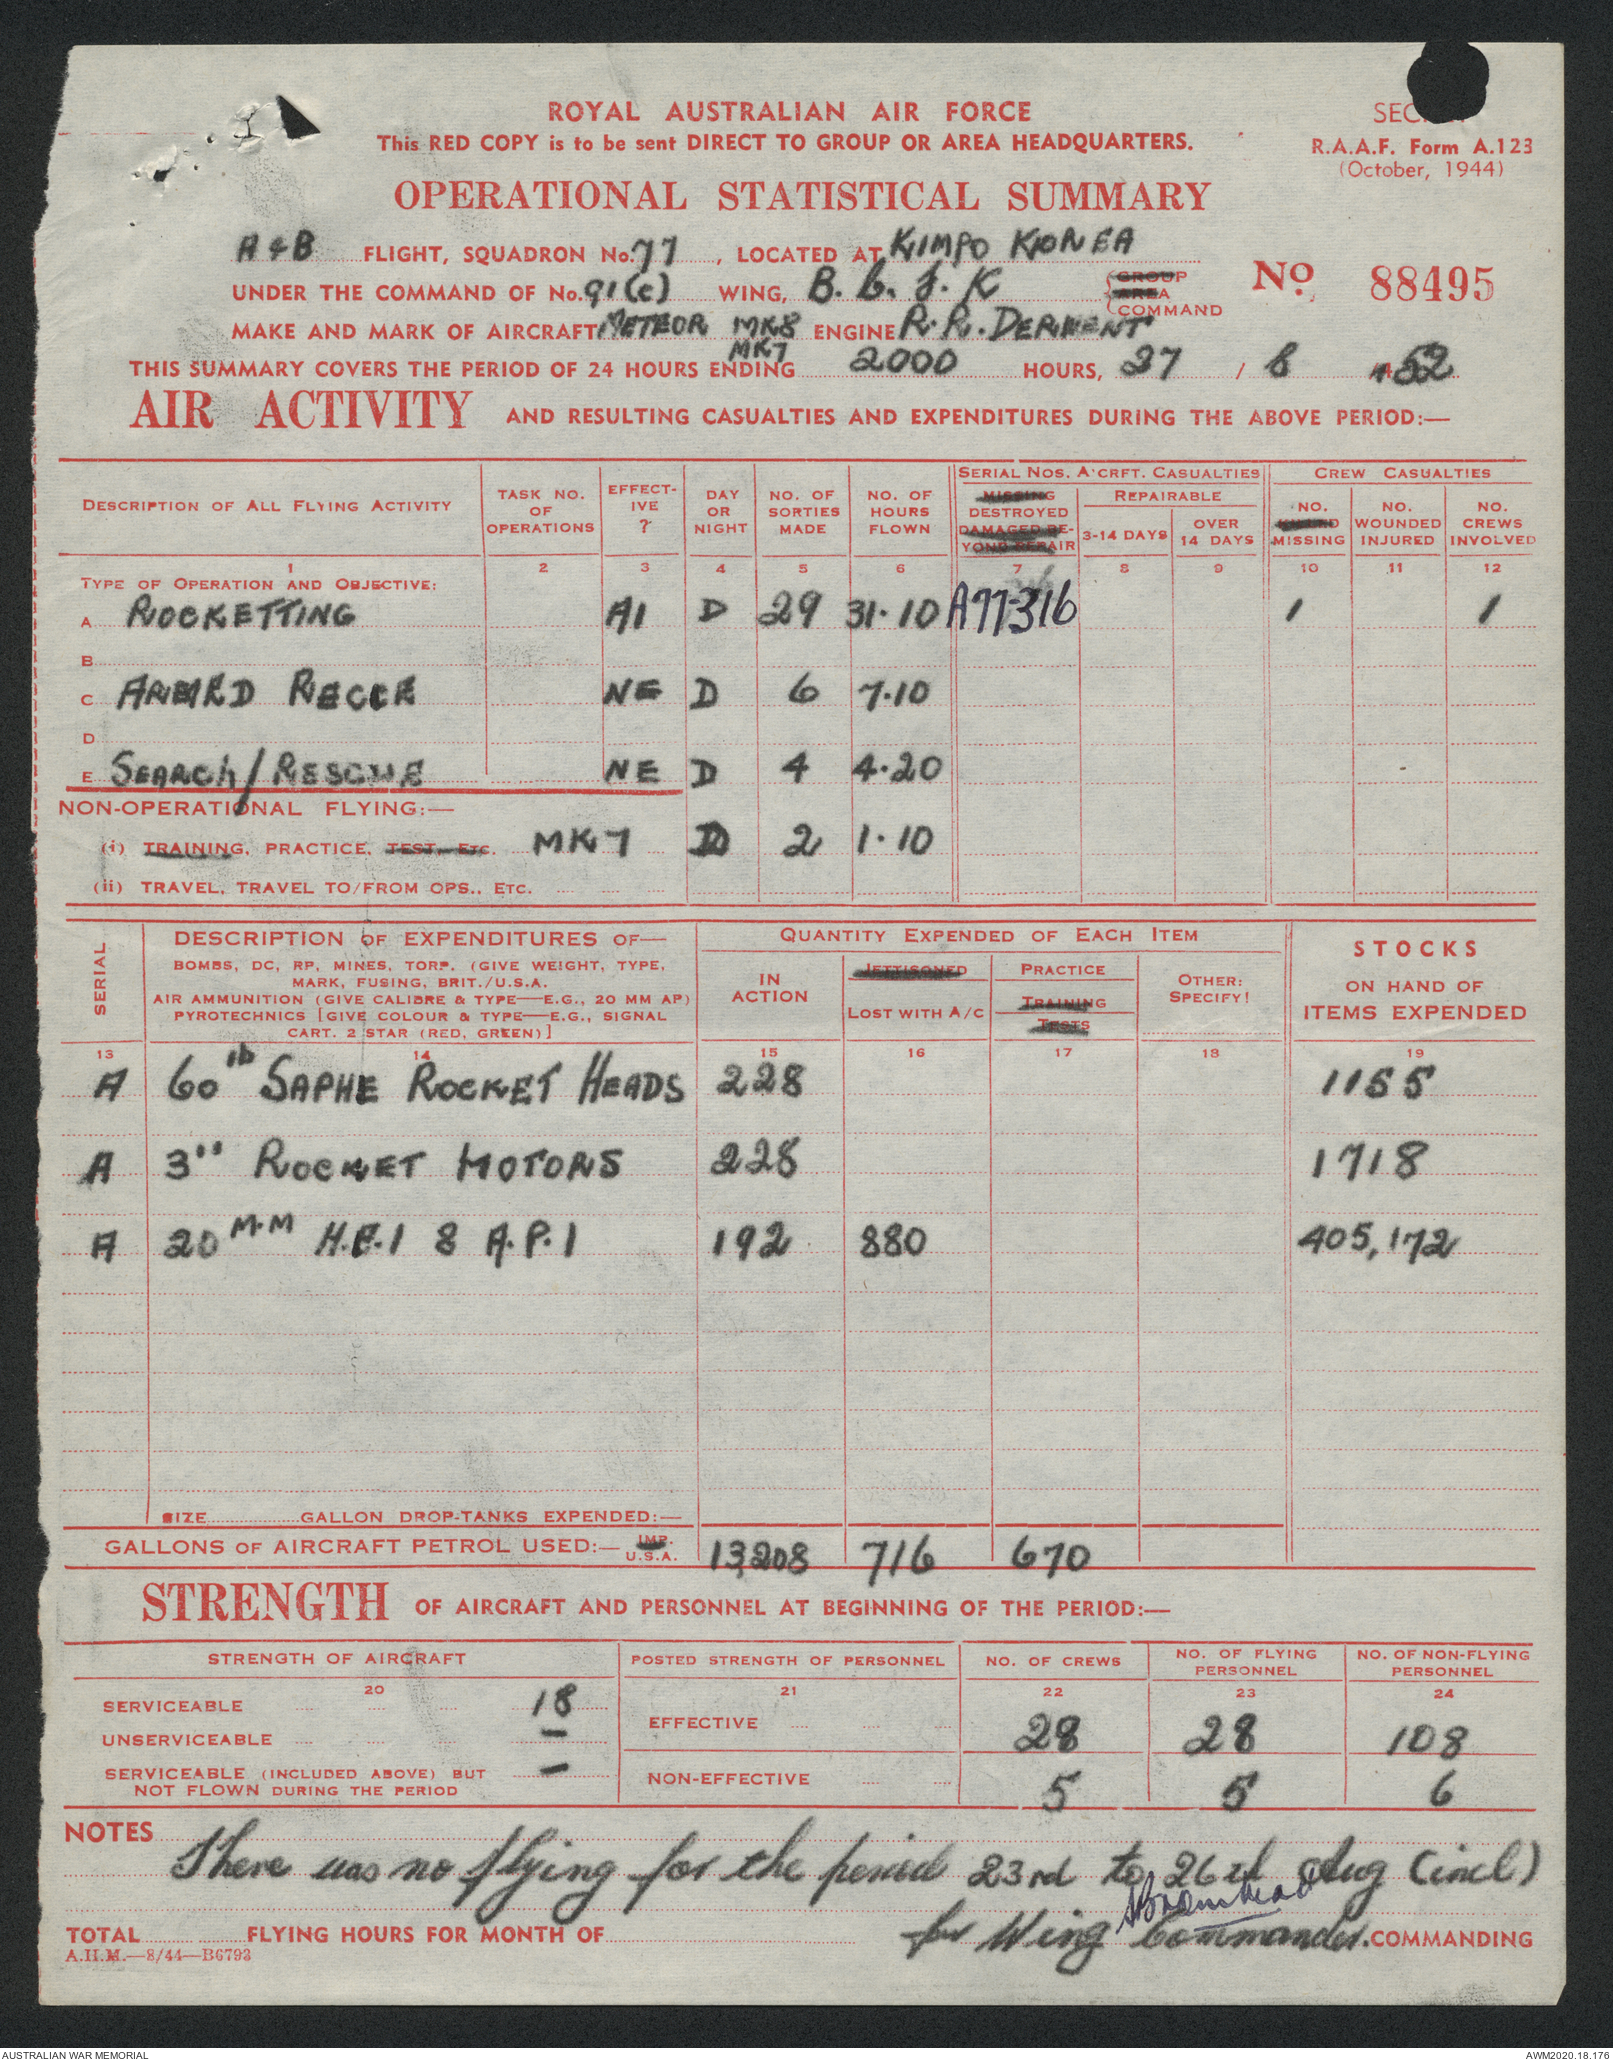 ROYAL AUSTRALIAN AIR FORCE
This RED COPY is to be sent DIRECT TO GROUP OR AREA HEADQUARTERS.
R.A.A.F. Form A.123
(October, 1944)
OPERATIONAL STATISTICAL SUMMARY
A & B FLIGHT, SQUADRON No. 77, LOCATED AT KIMPO KOREA
UNDER THE COMMAND OF No. 91(c) WING, B. C. F. K GROUP AREA COMMAND
No 88495
MAKE AND MARK OF AIRCRAFT METEOR MK8 MK7 ENGINE R.R. DERWENT
THIS SUMMARY COVERS THE PERIOD OF 24 HOURS ENDING 2000 HOURS, 27 / 8 /52
AIR ACTIVITY AND RESULTING CASUALTIES AND EXPENDITURES DURING THE ABOVE PERIOD:—
SERIAL NOS. A'CRFT. CASUALTIES CREW CASUALTIES
DESCRIPTION OF ALL FLYING ACTIVITY TASK NO. OF OPERATIONS EFFECTIVE ? DAY OR NIGHT NO. OF SORTIES MADE NO. OF HOURS FLOWN MISSING DESTROYED DAMAGED BEYOND REPAIR REPAIRABLE 3-14 DAYS OVER 14 DAYS NO. MISSING NO. WOUNDED INJURED NO. CREWS INVOLVED
1 2 3 4 5 6 7 8 9 10 11 12
TYPE OF OPERATION AND OBJECTIVE:
A ROCKETTING A1 D 29 31·10 A77-316 1 1
B
C ARMRD RECCE NE D 6 7·10
D
E SEARCH/RESCUE NE D 4 4·20
NON-OPERATIONAL FLYING:—
(i) TRAINING, PRACTICE, TEST, ETC. MK7 D 2 1·10
(ii) TRAVEL, TRAVEL TO/FROM OPS., ETC.
SERIAL
DESCRIPTION OF EXPENDITURES OF—
BOMBS, DC, RP, MINES, TORP. (GIVE WEIGHT, TYPE,
MARK, FUSING, BRIT./U.S.A.
AIR AMMUNITION (GIVE CALIBRE & TYPE—E.G., 20 MM AP)
PYROTECHNICS [GIVE COLOUR & TYPE—E.G., SIGNAL
CART. 2 STAR (RED, GREEN)]
QUANTITY EXPENDED OF EACH ITEM
IN ACTION JETTISONED LOST WITH A/C PRACTICE TRAINING TESTS OTHER: SPECIFY!
STOCKS
ON HAND OF
ITEMS EXPENDED
13 14 15 16 17 18 19
A 60 lb SAPHE ROCKET HEADS 228 1155
A 3" ROCKET MOTORS 228 1718
A 20 M.M H.E.I & A.P.I 192 880 405,172
SIZE GALLON DROP-TANKS EXPENDED:—
GALLONS OF AIRCRAFT PETROL USED:— IMP. U.S.A. 13,208 716 670
STRENGTH OF AIRCRAFT AND PERSONNEL AT BEGINNING OF THE PERIOD:—
STRENGTH OF AIRCRAFT POSTED STRENGTH OF PERSONNEL NO. OF CREWS NO. OF FLYING PERSONNEL NO. OF NON-FLYING PERSONNEL
20 21 22 23 24
SERVICEABLE 18
EFFECTIVE 28 28 108
UNSERVICEABLE —
SERVICEABLE (INCLUDED ABOVE) BUT NOT FLOWN DURING THE PERIOD —
NON-EFFECTIVE 5 5 6
NOTES
There was no flying for the period 23rd to 26th Aug (incl)
TOTAL FLYING HOURS FOR MONTH OF
for Wing Commander. COMMANDING
A.H.M.—8/44—B6793
AUSTRALIAN WAR MEMORIAL AWM2020.18.176